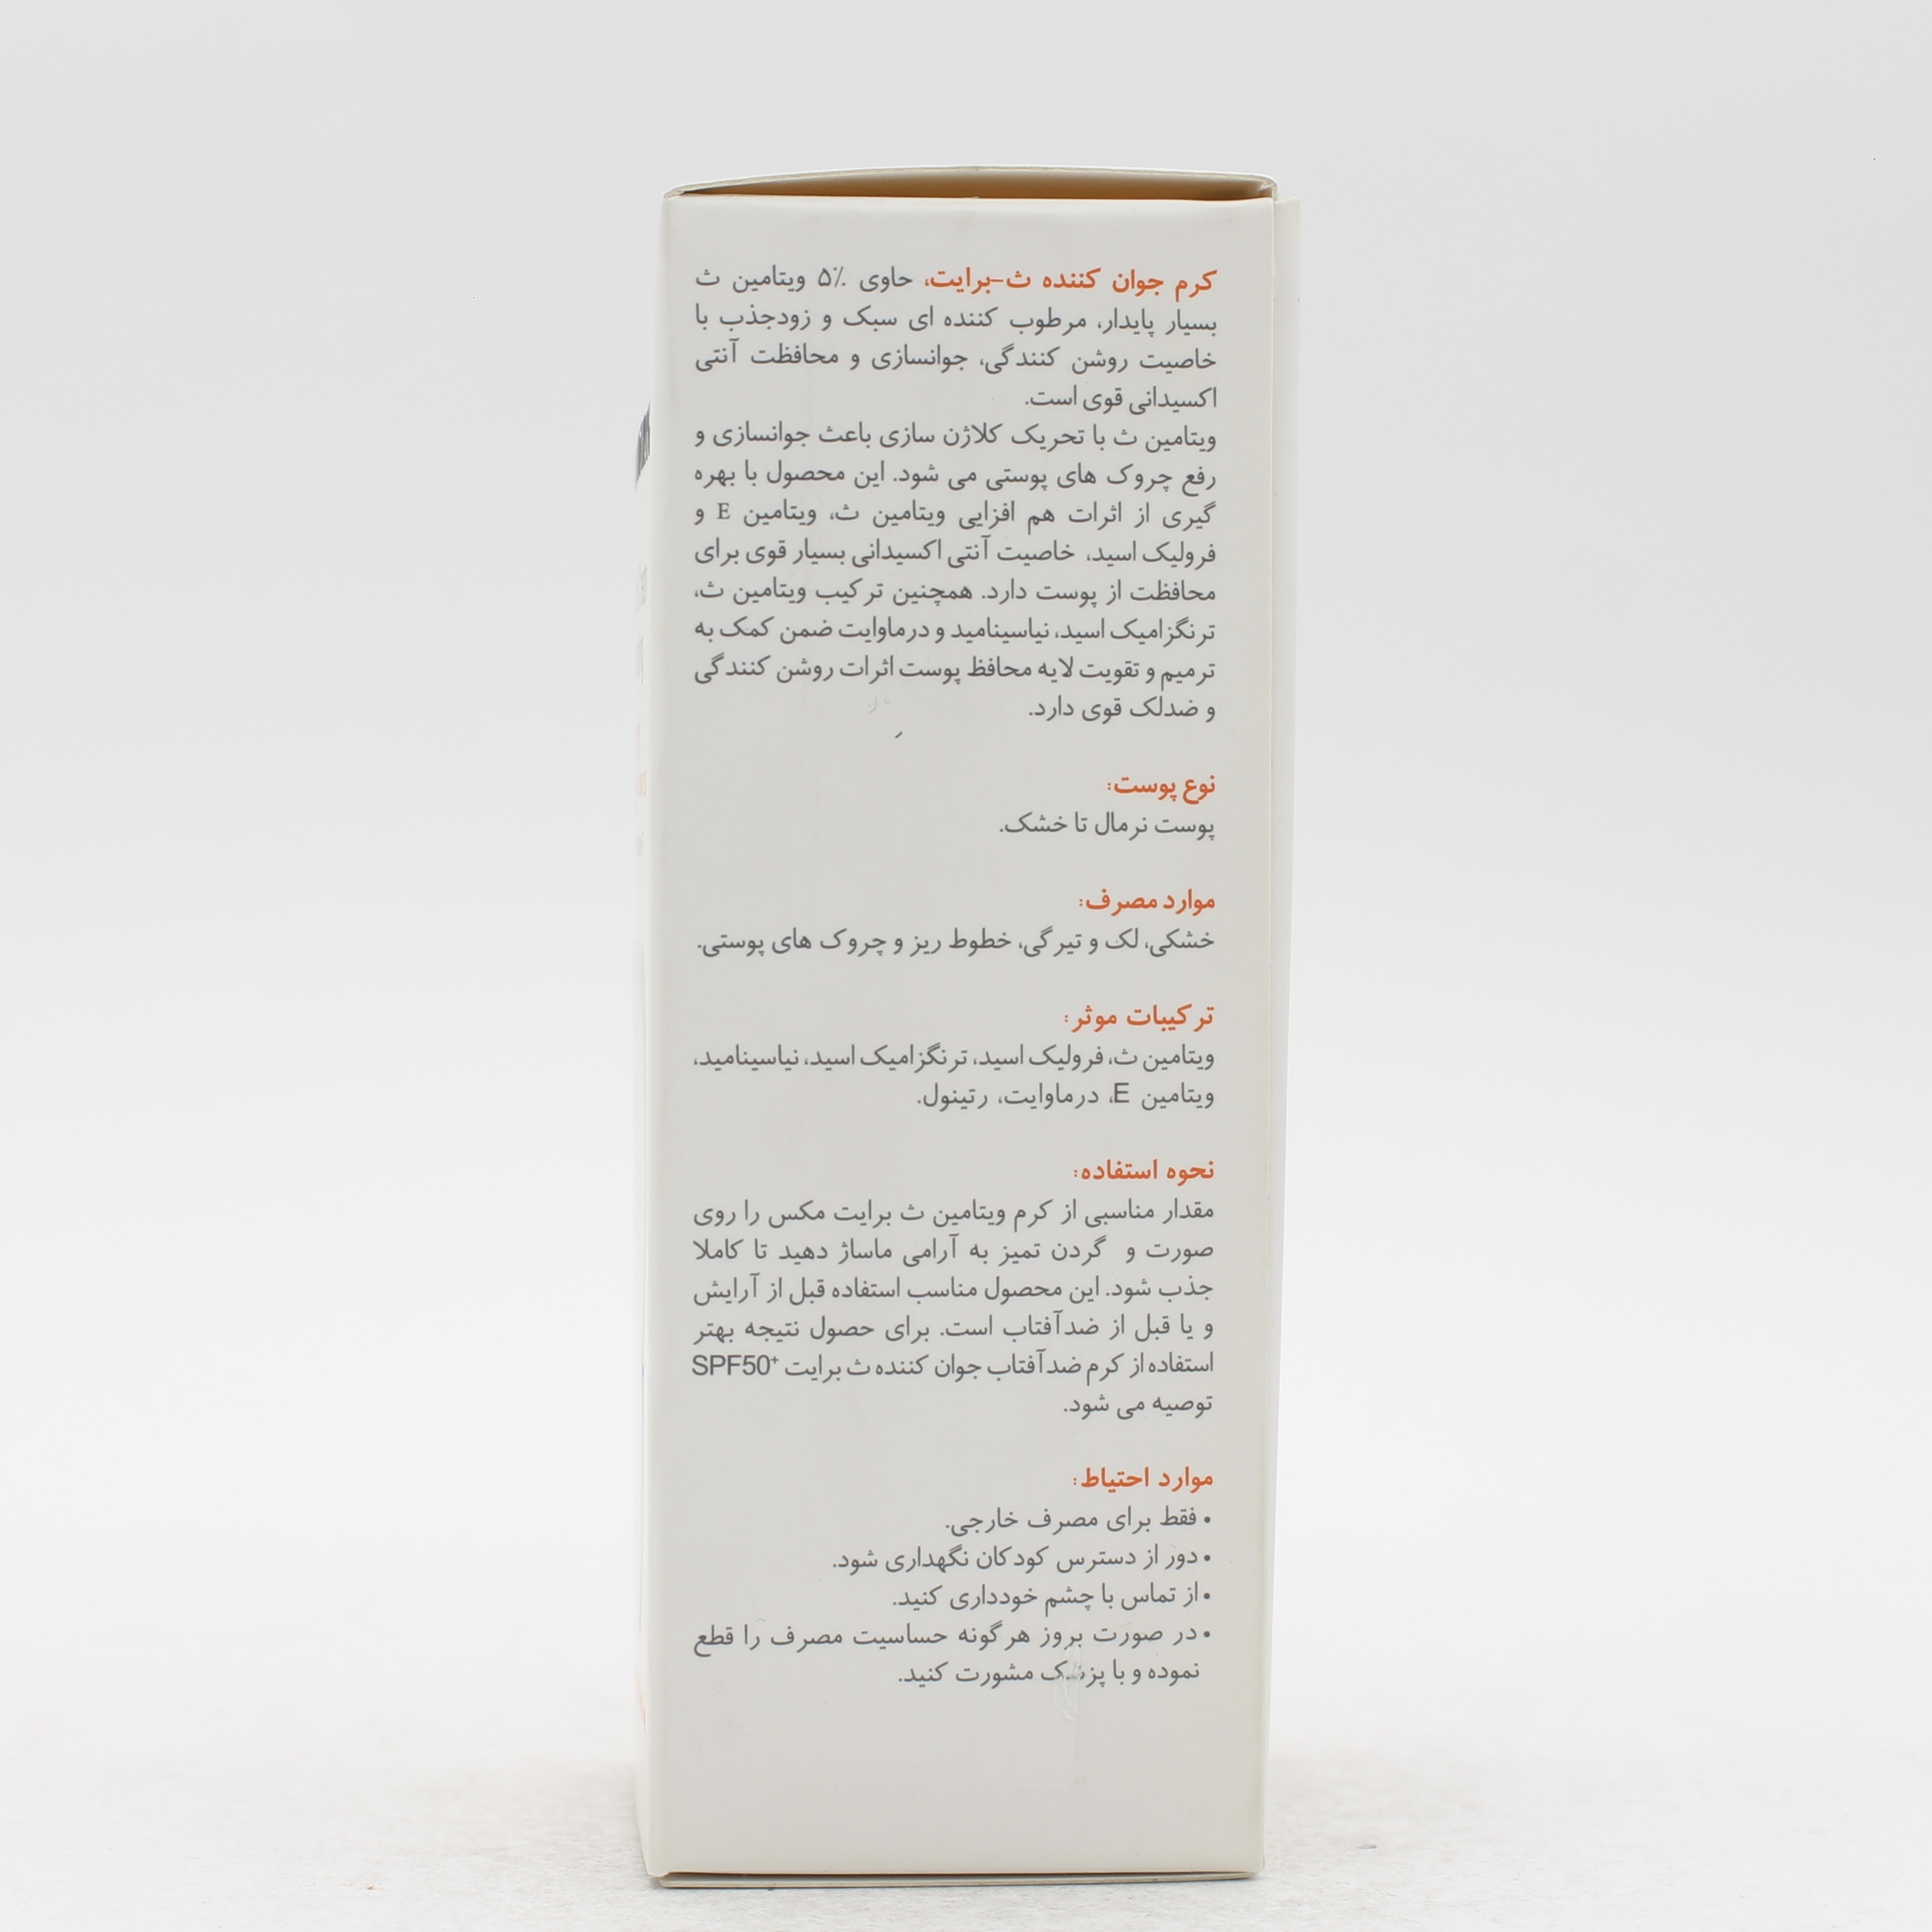 کرم جوان کننده ث-برایت، حاوی ۵٪ ویتامین ث
بسیار پایدار، مرطوب کننده ای سبک و زودجذب با
خاصیت روشن کنندگی، جوانسازی و محافظت آنتی
اکسیدانی قوی است.
ویتامین ث با تحریک کلاژن سازی باعث جوانسازی و
رفع چروک های پوستی می شود. این محصول با بهره
گیری از اثرات هم افزایی ویتامین ث، ویتامین E و
فرولیک اسید، خاصیت آنتی اکسیدانی بسیار قوی برای
محافظت از پوست دارد. همچنین ترکیب ویتامین ث،
ترنگزامیک اسید، نیاسینامید و درماوایت ضمن کمک به
ترمیم و تقویت لایه محافظ پوست اثرات روشن کنندگی
و ضدلک قوی دارد.
نوع پوست:
پوست نرمال تا خشک.
موارد مصرف:
خشکی، لک و تیرگی، خطوط ریز و چروک های پوستی.
ترکیبات موثر:
ویتامین ث، فرولیک اسید، ترنگزامیک اسید، نیاسینامید،
ویتامین E، درماوایت، رتینول.
نحوه استفاده:
مقدار مناسبی از کرم ویتامین ث برایت مکس را روی
صورت و گردن تمیز به آرامی ماساژ دهید تا کاملا
جذب شود. این محصول مناسب استفاده قبل از آرایش
و یا قبل از ضدآفتاب است. برای حصول نتیجه بهتر
استفاده از کرم ضدآفتاب جوان کننده ث برایت SPF50+
توصیه می شود.
موارد احتیاط:
• فقط برای مصرف خارجی.
• دور از دسترس کودکان نگهداری شود.
• از تماس با چشم خودداری کنید.
• در صورت بروز هرگونه حساسیت مصرف را قطع
نموده و با پزشک مشورت کنید.